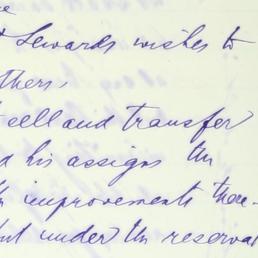 Sewards wishes to
thers,
sell and transfer
d his assigns the
improvements there-
but under the reserva